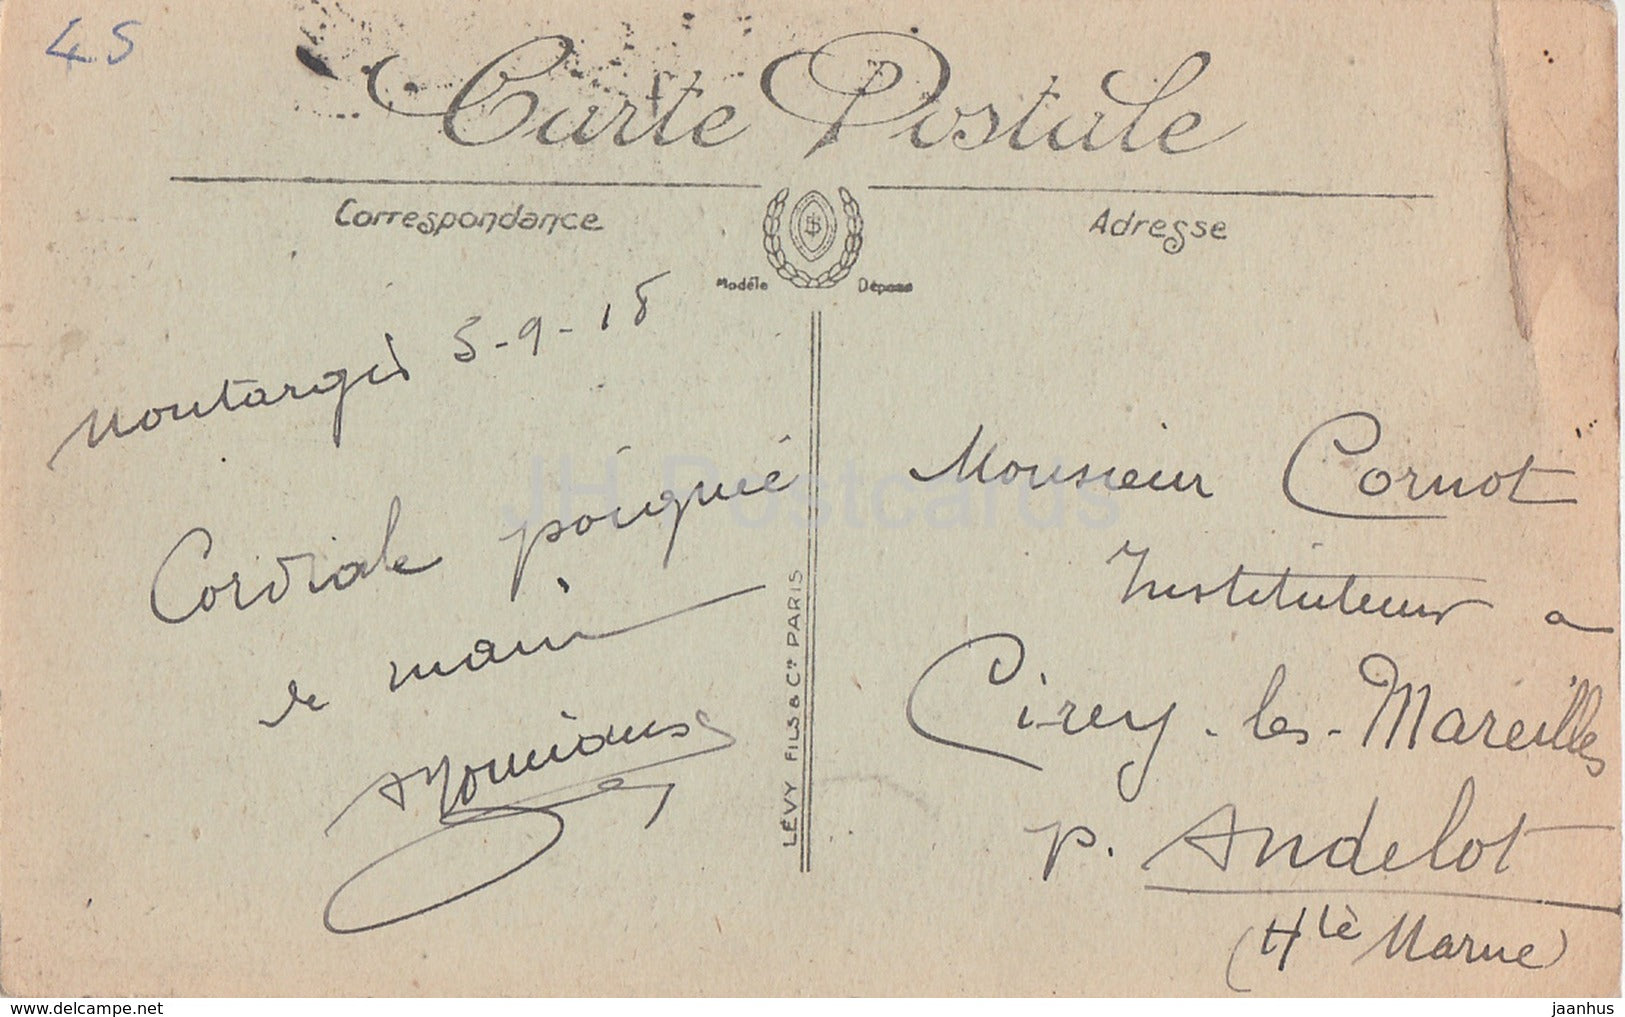 45
Carte Postale
Correspondance
Adresse
Modèle Déposé
Montargis 5-9-18
Cordiale poignée
de main
LÉVY FILS & Cie PARIS
Monsieur Cornot
Instituteur a
Cirey-les-Mareilles
p. Andelot
(Hte Marne)
JH Postcards
hip-hip-post.com
jaanhus